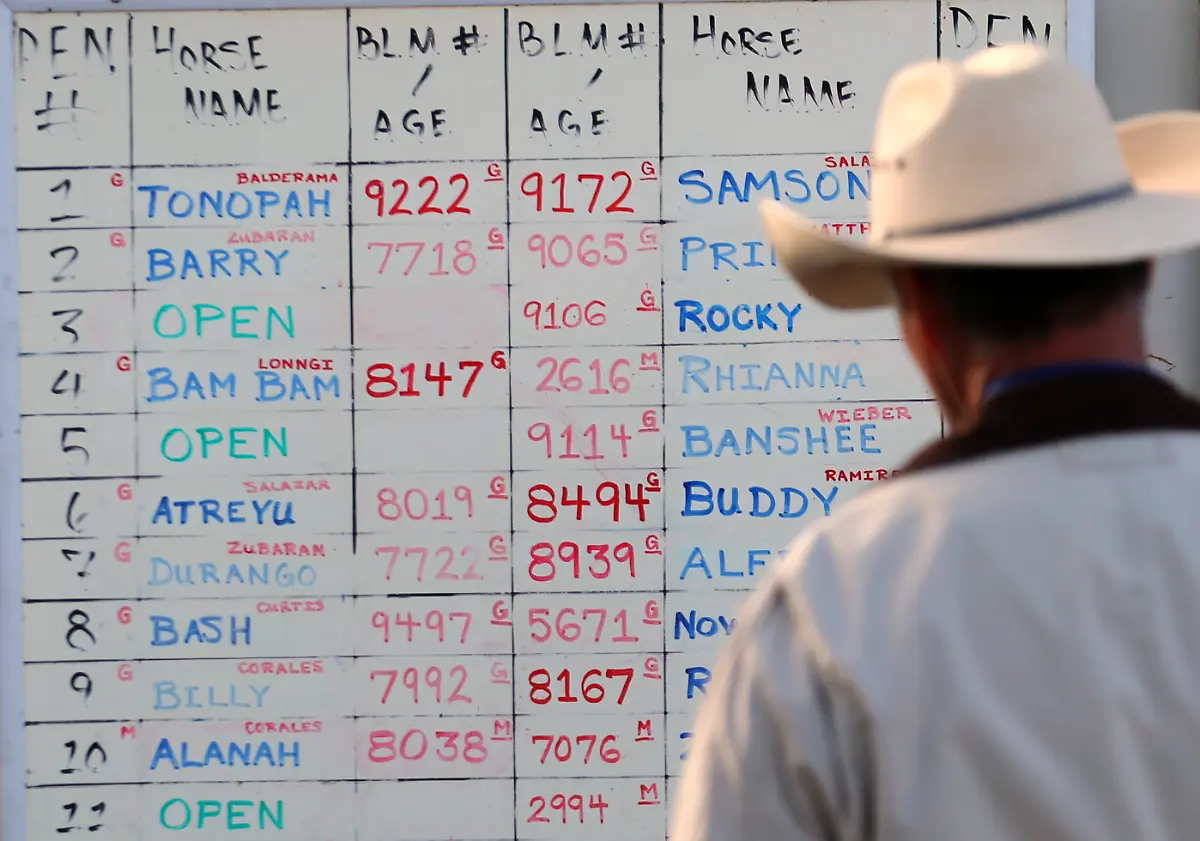 PEN # HORSE NAME BLM # / AGE BLM # / AGE HORSE NAME PEN
1 G BALDERAMA TONOPAH 9222 G 9172 G SAMSON
2 G ZUBARAN BARRY 7718 G 9065 G
3 OPEN 9106 G ROCKY
4 G LONNGI BAM BAM 8147 G 2616 M RHIANNA
5 OPEN 9114 G WIEBER BANSHEE
6 G SALAZAR ATREYU 8019 G 8494 G BUDDY
7 G ZUBARAN DURANGO 7722 G 8939 G
8 G CURTIS BASH 9497 G 5671 G
9 G CORALES BILLY 7992 G 8167 G
10 M CORALES ALANAH 8038 M 7076 M
11 OPEN 2994 M